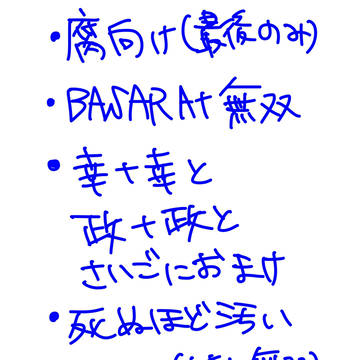 ・腐向け(最後のみ)
・BASARA+無双
・幸+幸と
政+政と
さいごにおまけ
・死ぬほど汚い